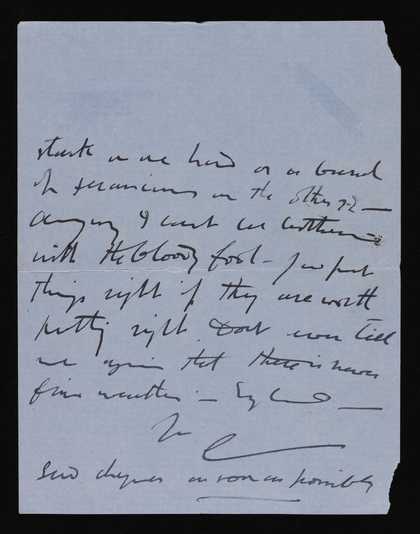 stalk in one hand or a bunch
of geraniums in the other &
anyway I can't be bothered
with the bloody fool - You put
things right if they are worth
putting right. Don't ever tell
me again that there is never
fine weather in England -
Yr
Send cheques as soon as possible